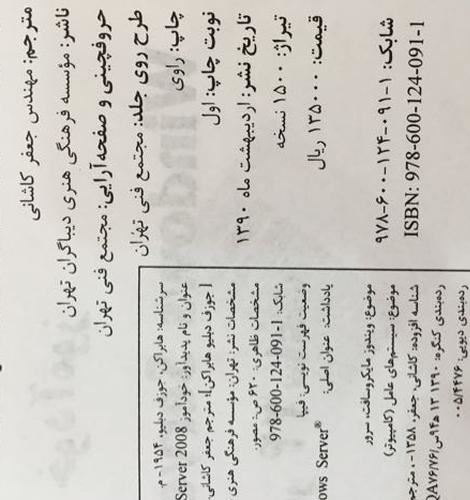 مترجم: مهندس جعفر کاشانی
ناشر: مؤسسه فرهنگی هنری دیباگران تهران
حروفچینی و صفحه‌آرایی: مجتمع فنی تهران
طرح روی جلد: مجتمع فنی تهران
چاپ: راوی
نوبت چاپ: اول
تاریخ نشر: اردیبهشت ماه ۱۳۹۰
تیراژ: ۱۵۰۰ نسخه
قیمت: ۱۳۵۰۰۰ ریال
شابک: ۱-۰۹۱-۱۲۴-۶۰۰-۹۷۸
ISBN: 978-600-124-091-1
سرشناسه: هایراکن، جوزف دبلیو، ۱۹۵۴- م.
عنوان و نام پدیدآور: خودآموز Server 2008
[جوزف دبلیو هایراکن]؛ مترجم جعفر کاشانی
مشخصات نشر: تهران: مؤسسه فرهنگی هنری
مشخصات ظاهری: ۶۲۰ ص: مصور.
شابک: 978-600-124-091-1
وضعیت فهرست نویسی: فیپا
یادداشت: عنوان اصلی: ows Server®
موضوع: ویندوز مایکروسافت، سرور
موضوع: سیستم‌های عامل (کامپیوتر)
شناسه افزوده: کاشانی، جعفر، ۱۳۵۸-، مترجم
رده‌بندی کنگره: ۱۳۹۰
رده‌بندی دیویی: ۰۰۵/۴۴۷۶